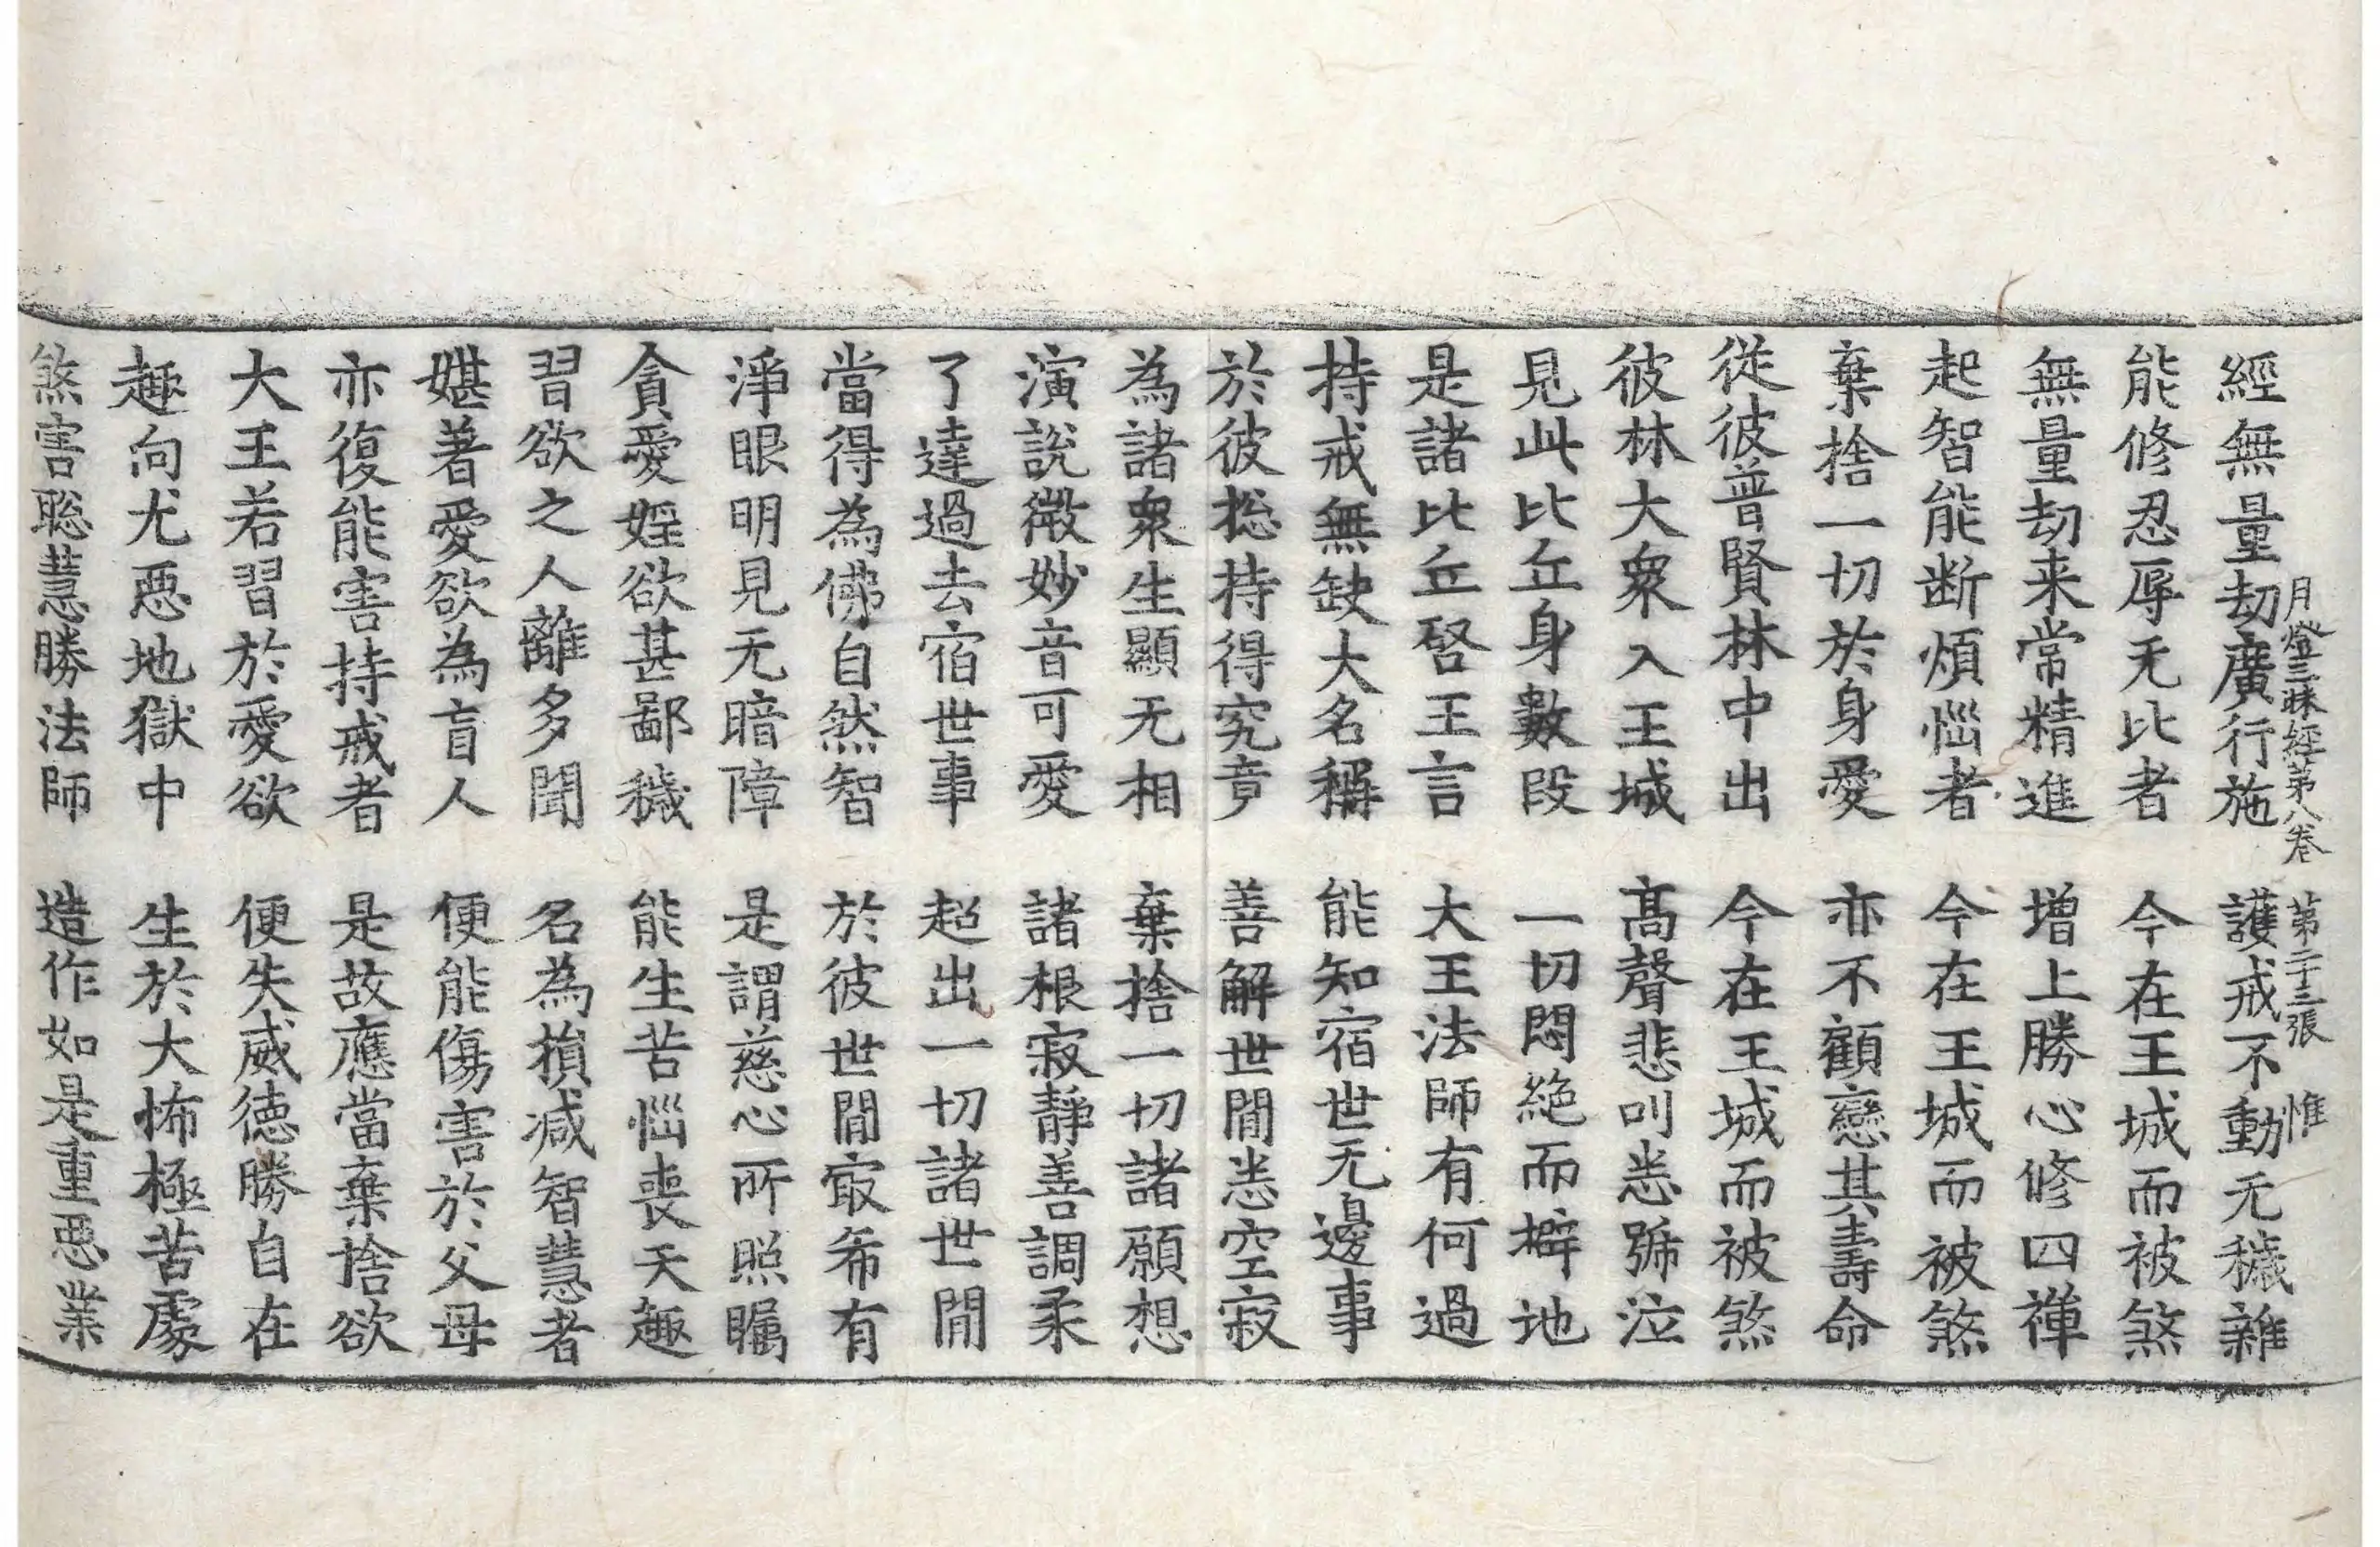 月燈三昧經第八卷 第二十三張 惟
經無量劫廣行施 護戒不動无穢雜
能修忍辱无比者 今在王城而被煞
無量劫来常精進 增上勝心修四禪
起智能断煩惱者 今在王城而被煞
棄捨一切於身愛 亦不顧戀其壽命
從彼普賢林中出 今在王城而被煞
彼林大衆入王城 髙聲悲叫悉號泣
見此比丘身數段 一切悶絶而擗地
是諸比丘啓王言 大王法師有何過
持戒無缺大名稱 能知宿世无邊事
於彼捴持得究竟 善解世間悉空寂
為諸衆生顯无相 棄捨一切諸願想
演說微妙音可愛 諸根寂靜善調柔
了達過去宿世事 超出一切諸世間
當得為佛自然智 於彼世間㝡希有
淨眼明見无暗障 是謂慈心所照矚
貪愛婬欲甚鄙穢 能生苦惱喪天趣
習欲之人離多聞 名為損减智慧者
媅著愛欲為盲人 便能傷害於父母
亦復能害持戒者 是故應當棄捨欲
大王若習於愛欲 便失威德勝自在
趣向尤惡地獄中 生於大怖極苦處
煞害聡慧勝法師 造作如是重惡業